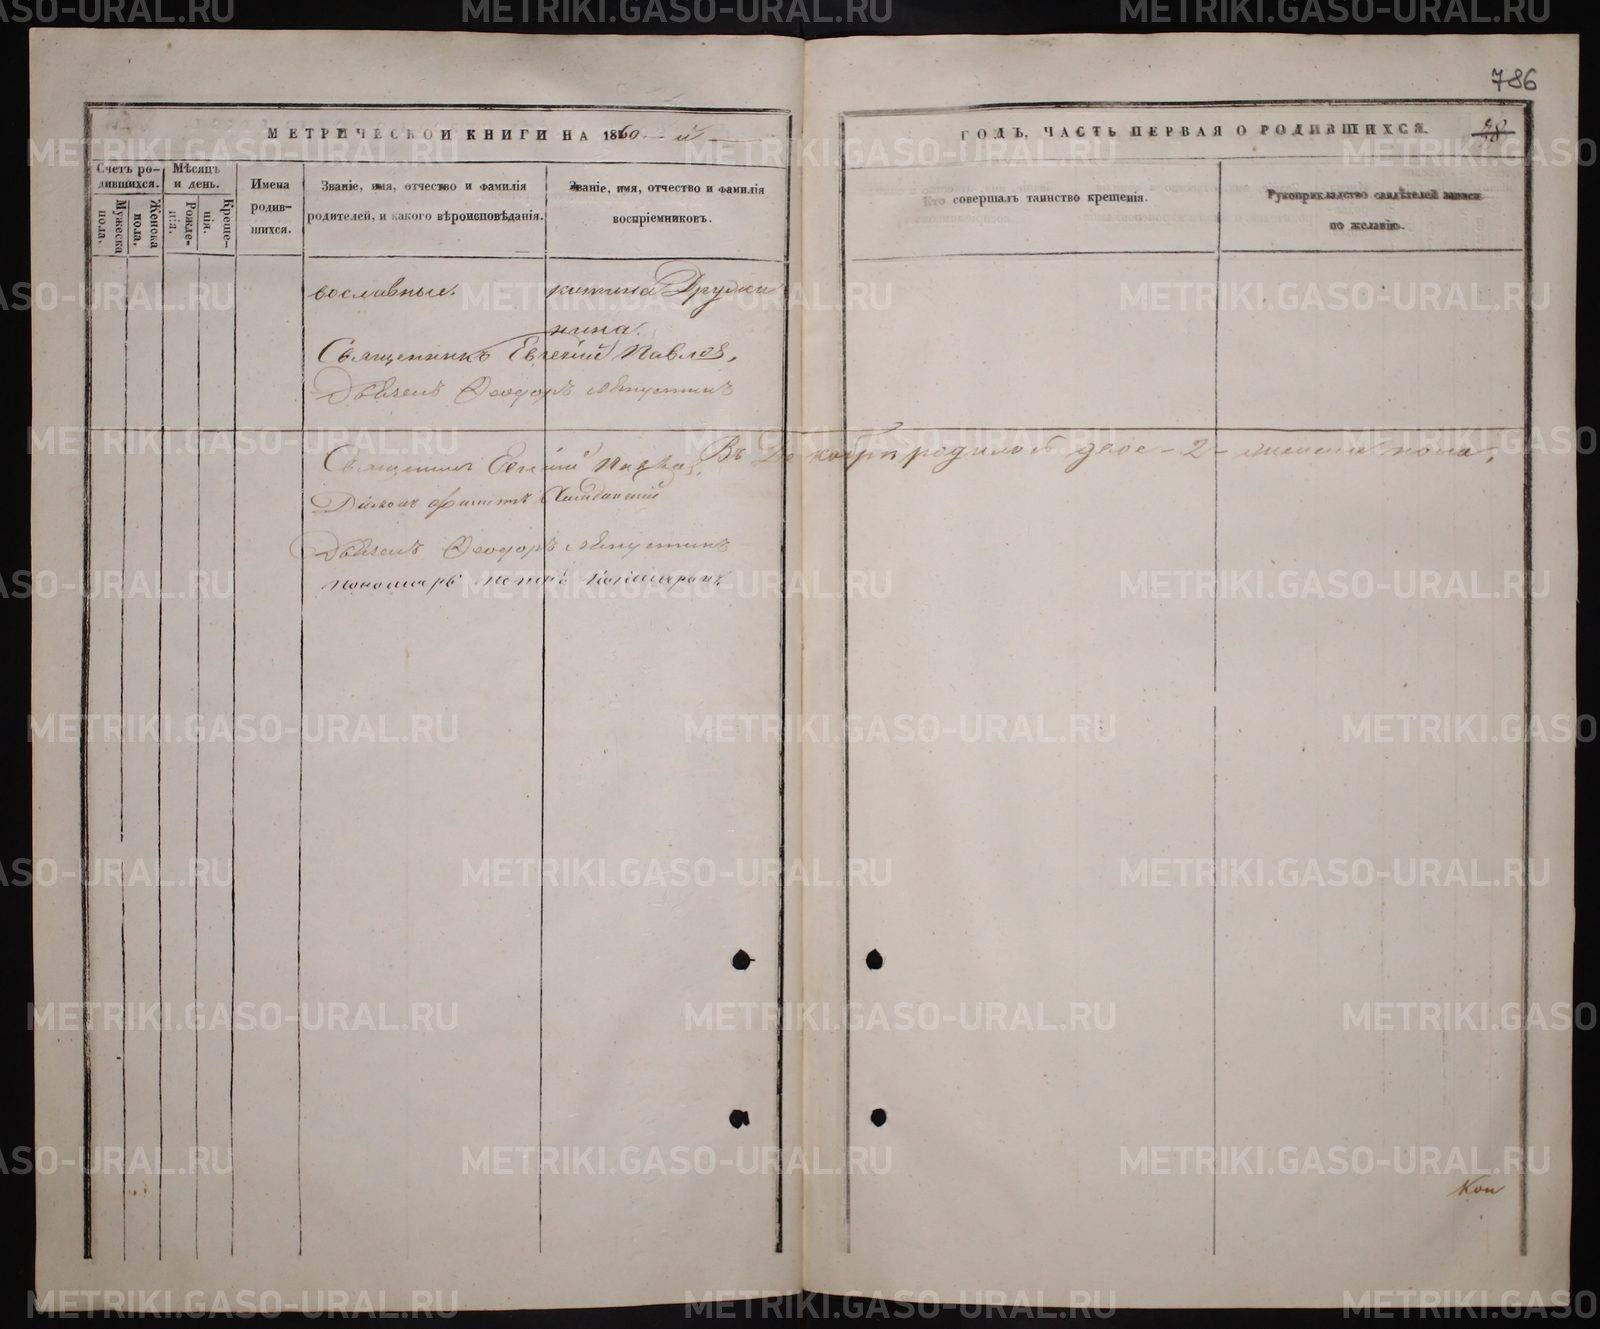 786
МЕТРИЧЕСКОЙ КНИГИ НА 1860-й
ГОДЪ, ЧАСТЬ ПЕРВАЯ О РОДИВШИХСЯ.
Счетъ ро-
дившихся.
Мужеска
пола.
Женска
пола.
Мѣсяцъ
и день.
Рожде-
нія.
Креще-
нія.
Имена
родив-
шихся.
Званіе, имя, отчество и фамилія
родителей, и какого вѣроисповѣданія.
Званіе, имя, отчество и фамилія
воспріемниковъ.
Кто совершалъ таинство крещенія.
Рукоприкладство свидѣтелей записи
по желанію.
вославные.
нина.
Священникъ Евгеній Павлов,
Ѳеодоръ
Въ Декабрѣ родилось двое - 2 - женска пола,
Священник Евгеній
Ѳеодоръ
Пономарь
Кон
METRIKI.GASO-URAL.RU